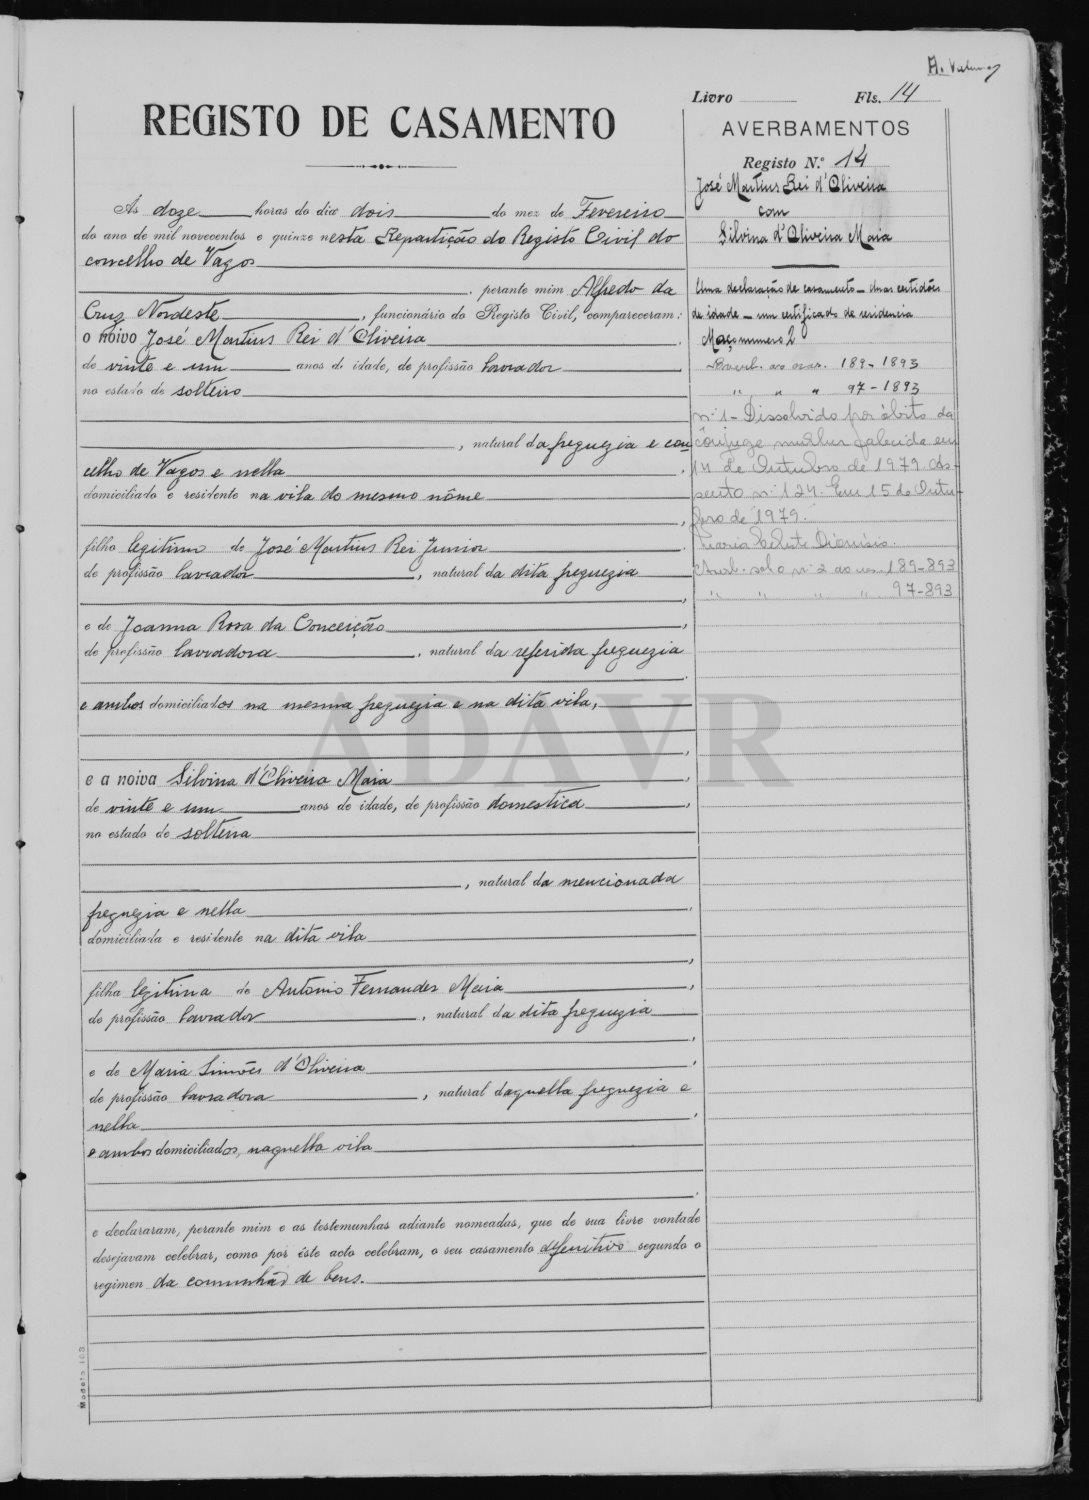 Livro Fls. 14
REGISTO DE CASAMENTO
Às doze horas do dia dois do mez de Fevereiro
do ano de mil novecentos e quinze nesta Repartição do Registo Civil do
concelho de Vagos
, perante mim Alfredo da
Cruz Nordeste, funcionário do Registo Civil, compareceram:
o noivo José Martins Rei d'Oliveira
de vinte e um anos de idade, de profissão lavrador
no estado de solteiro
, natural da freguezia e con
celho de Vagos e nella
domiciliado e residente na vila do mesmo nôme
filho legitimo de José Martins Rei Junior
de profissão lavrador, natural da dita freguezia
e de Joanna Rosa da Conceição
de profissão lavradora, natural da referida freguezia
e ambos domiciliados na mesma freguezia e na dita vila,
e a noiva Silvina d'Oliveira Maia
de vinte e um anos de idade, de profissão domestica
no estado de solteira
, natural da mencionada
freguezia e nella
domiciliada e residente na dita vila
filha legitima de Antonio Fernandes Maia
de profissão lavrador, natural da dita freguezia
e de Maria Simões d'Oliveira
de profissão lavradora, natural daquella freguezia e
nella
e ambos domiciliados, naquella vila
e declararam, perante mim e as testemunhas adiante nomeadas, que de sua livre vontade
desejavam celebrar, como por êste acto celebram, o seu casamento defenitivo segundo o
regimen da comunhão de bens.
Modelo 103
AVERBAMENTOS
Registo N.º 14
José Martins Rei d'Oliveira
com
Silvina d'Oliveira Maia
Uma declaração de casamento – duas certidões
de idade – um certificado de residencia
Maço numero 2
189-1893
" " " 97-1893
nº 1 - Dissolvido por óbito da
cônjuge mulher falecida em
14 de Outubro de 1979. As-
sento nº 124. Em 15 de Outu-
bro de 1979.
Maria Celeste Dionísio.
sob o nº 2 189-893
" " " " 97-893
ADAVR